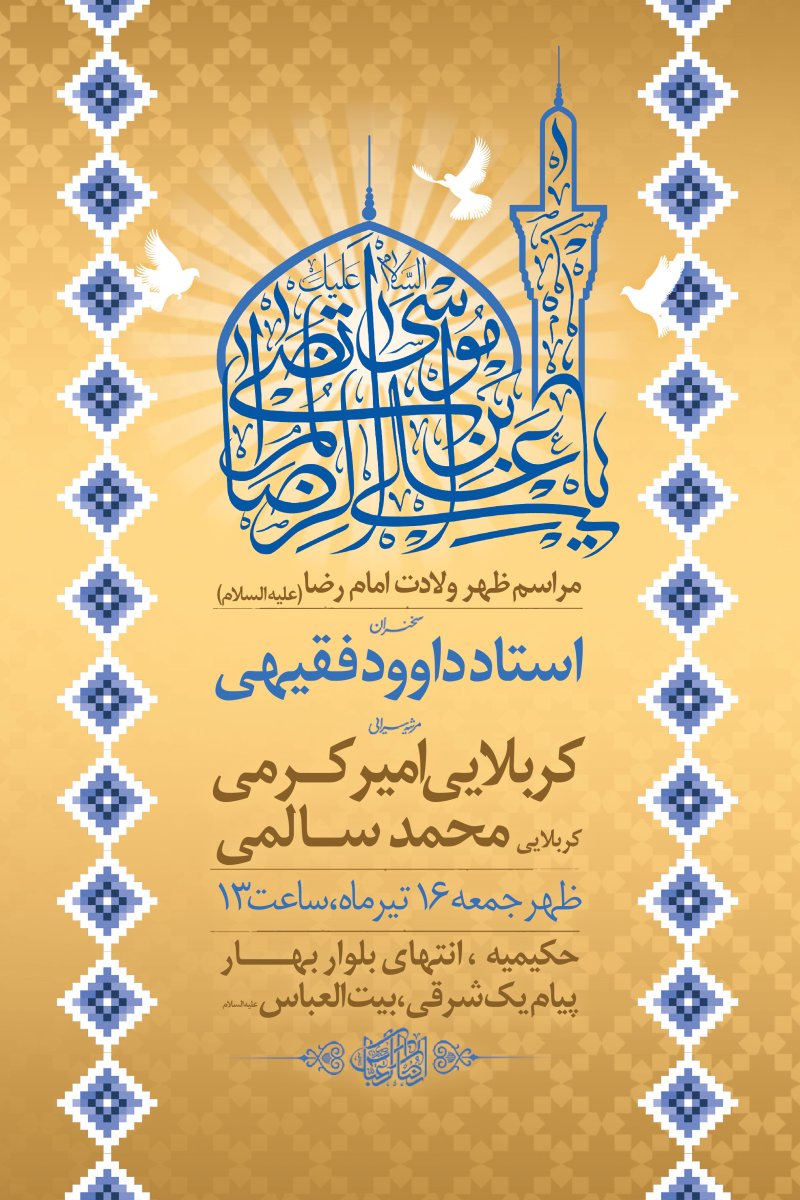 السَّلامُ عَلَیكَ
یا عَلی بنِ مُوسَی الرِضَا المُرتَضی
مراسم ظهر ولادت امام رضا (علیه السلام)
سخنران
استاد داوود فقیهی
کربلایی امیر کرمی
کربلایی محمد سالمی
ظهر جمعه ۱۶ تیرماه، ساعت ۱۳
حکیمیه ، انتهای بلوار بهار
پیام یک شرقی، بیت‌العباس علیه السلام